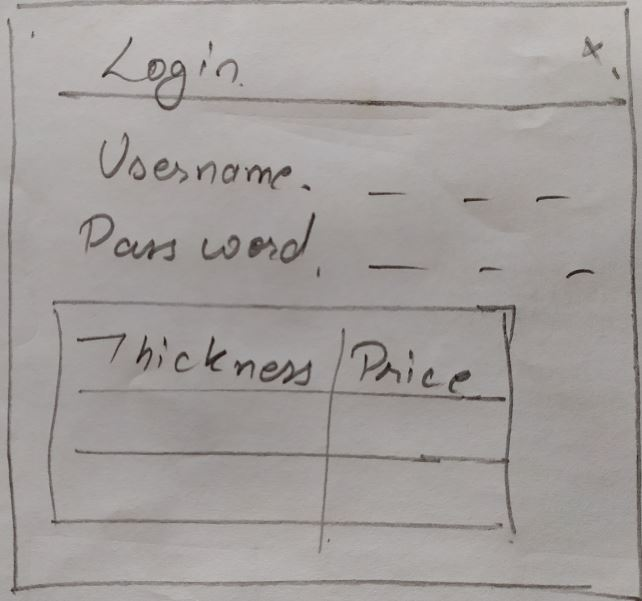 Login x
Username. _ _ _
Password. _ _ _
Thickness Price